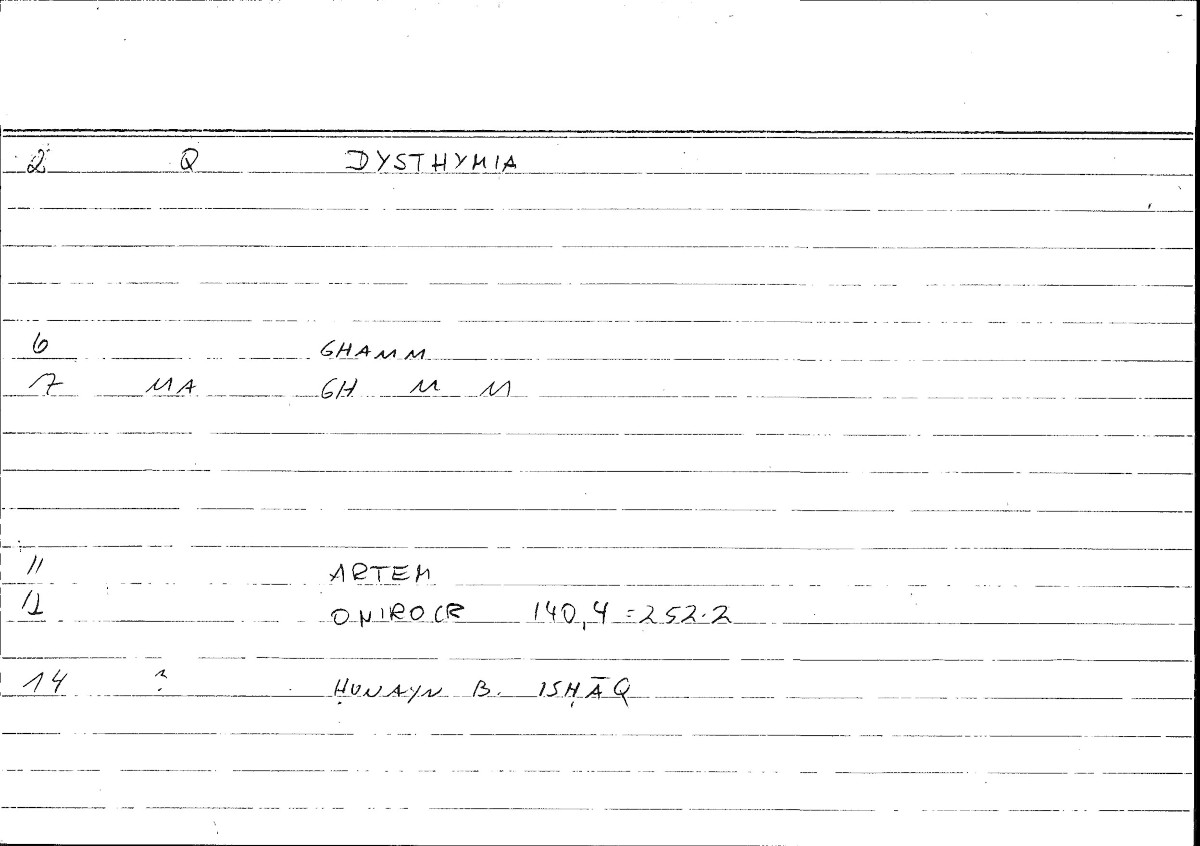 2 Q DYSTHYMIA
6 GHAMM
7 MA GH M M
11 ARTEM
12 ONIROCR 140,4 = 252.2
14 ? ḤUNAYN B. ISḤĀQ